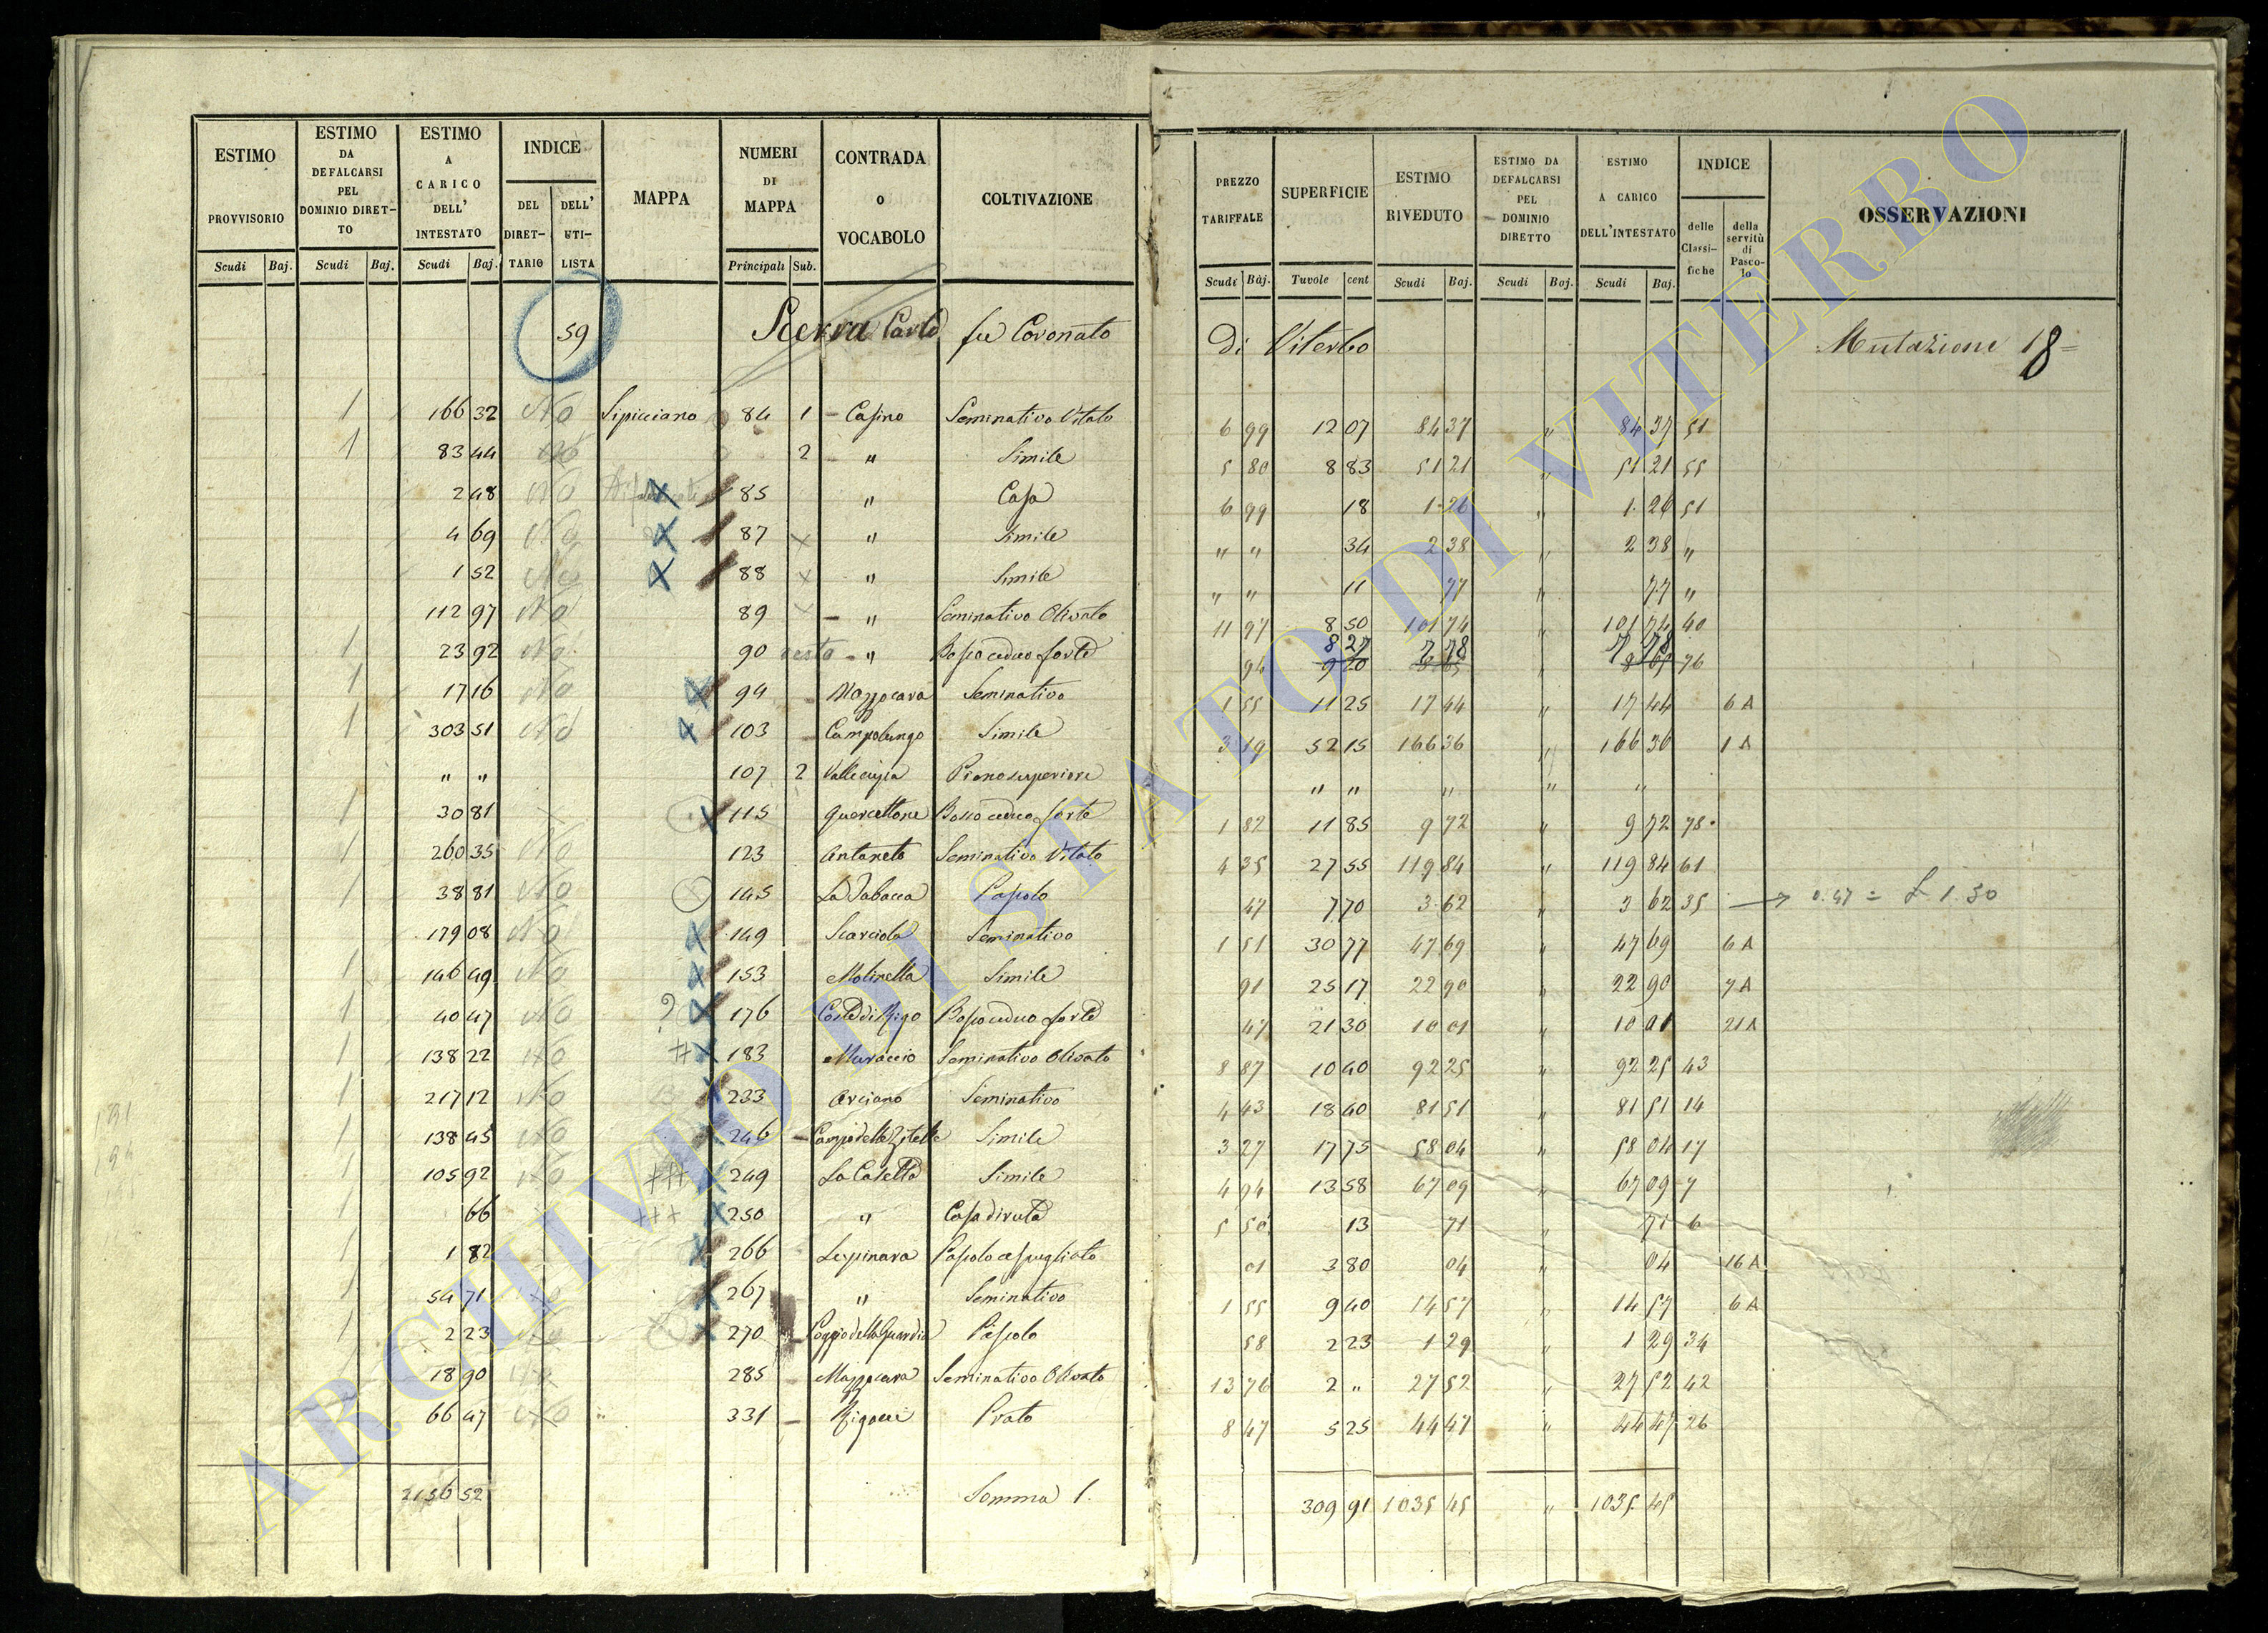 ESTIMO PROVVISORIO Scudi Baj.
ESTIMO DA DEFALCARSI PEL DOMINIO DIRET-TO Scudi Baj.
ESTIMO A CARICO DELL' INTESTATO Scudi Baj.
INDICE DEL DIRET-TARIO DELL' UTI-LISTA
MAPPA
NUMERI DI MAPPA Principali Sub.
CONTRADA o VOCABOLO
COLTIVAZIONE
59 Scerra Carlo fu Coronato
166 32 No Sipicciano 84 1 Casino Seminativo Vitato
83 44 2 " Simile
2 48 No 85 " Casa
4 69 No 87 " Simile
1 52 No 88 " Simile
112 97 No 89 " Seminativo Olivato
23 92 No 90 resta " Bosco ceduo forte
17 16 No 94 Mazzocava Seminativo
303 51 No 103 Campolungo Simile
" " 107 2 Piano superiore
30 81 115 Quercettone Bosco ceduo forte
260 35 No 123 Antoneto Seminativo Vitato
38 81 No 145 La Pascolo
179 08 No 149 Scarciola Seminativo
146 49 No 153 Molinella Simile
40 47 No ? 176 Coste di Rigo Bosco ceduo forte
138 22 No 183 Muraccio Seminativo Olivato
217 12 No 233 Arciano Seminativo
138 45 No 246 Campo delle Zitelle Simile
105 92 No +++ 249 La Casetta Simile
66 +++ 250 " Casa diruta
1 82 266 Lespinara Pascolo cespugliato
54 71 No 267 " Seminativo
2 23 No 270 Poggio della Guardia Pascolo
18 90 285 Mazzocava Seminativo Olivato
66 47 No 331 Rigacci Prato
2156 52 Somma 1.
PREZZO TARIFFALE Scudi Baj.
SUPERFICIE Tavole cent
ESTIMO RIVEDUTO Scudi Baj.
ESTIMO DA DEFALCARSI PEL DOMINIO DIRETTO Scudi Baj.
ESTIMO A CARICO DELL'INTESTATO Scudi Baj.
INDICE delle Classi-fiche della servitù di Pasco-lo
OSSERVAZIONI
Di Viterbo Mutazione 18 =
6 99 12 07 84 37 " 84 37 51
5 80 8 83 51 21 " 51 21 55
6 99 18 1 26 " 1 26 51
" " 34 2 38 " 2 38 "
" " 11 77 " 77 "
11 97 8 50 101 74 " 101 74 40
8 27 7 78 7 78
94 9 20 8 65 " 8 65 76
1 55 11 25 17 44 " 17 44 6 A
3 19 52 15 166 36 " 166 36 1 A
" " " " "
1 82 11 85 9 72 " 9 72 78
4 35 27 55 119 84 " 119 84 61
47 7 70 3 62 " 3 62 35 → 0.47 = £ 1 30
1 51 30 77 47 69 " 47 69 6 A
91 25 17 22 90 " 22 90 7 A
47 21 30 10 01 " 10 01 21 A
8 87 10 40 92 25 " 92 25 43
4 43 18 40 81 51 " 81 51 14
3 27 17 75 58 04 " 58 04 17
4 94 13 58 67 09 " 67 09 7
5 50 13 71 " 71 6
01 3 80 04 " 04 16 A
1 55 9 40 14 57 " 14 57 6 A
58 2 23 1 29 " 1 29 34
13 76 2 " 27 52 " 27 52 42
8 47 5 25 44 47 " 44 47 26
309 91 1035 45 " 1035 45
ARCHIVIO DI STATO DI VITERBO